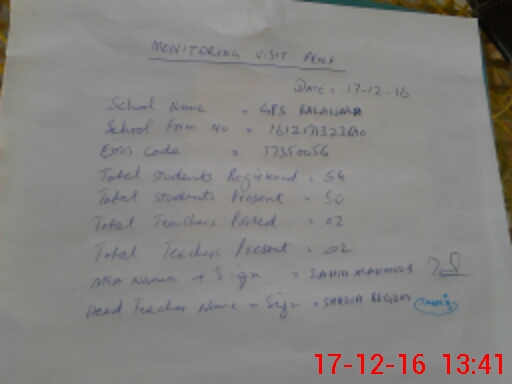 MONITORING VISIT PROF
DATE: 17-12-16
School Name = GPS
School Form No =
EMIS Code =
Total Students Registered = 54
Total Students Present = 50
Total Teachers Posted = 02
Total Teachers Present = 02
Name + Sign = ZAHIR MAHMOOD
Head Teacher Name + Sign = SHAZIA BEGUM
17-12-16 13:41